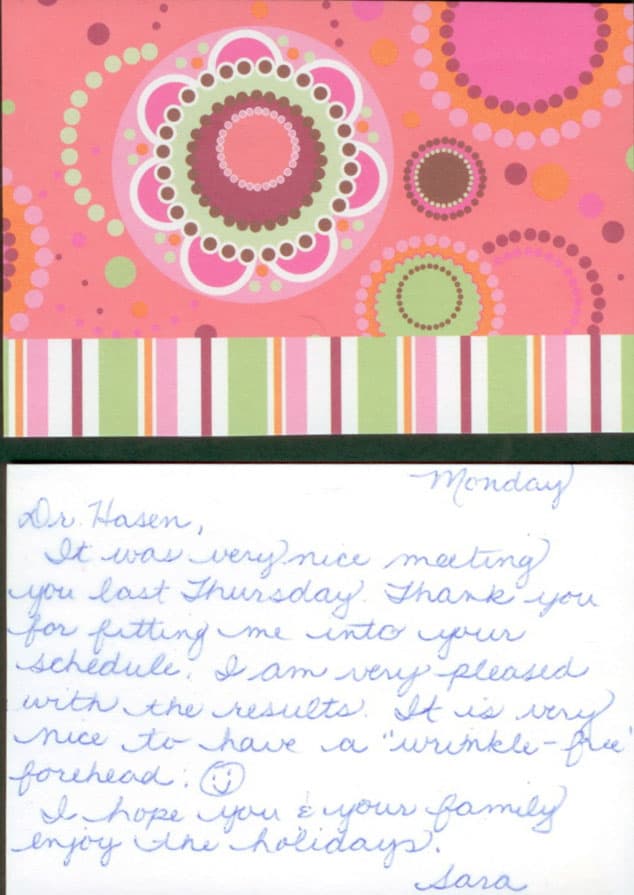 Monday
Dr. Hasen,
It was very nice meeting
you last Thursday. Thank you
for fitting me into your
schedule. I am very pleased
with the results. It is very
nice to have a "wrinkle-free"
forehead. ☺
I hope you & your family
enjoy the holidays.
Sara